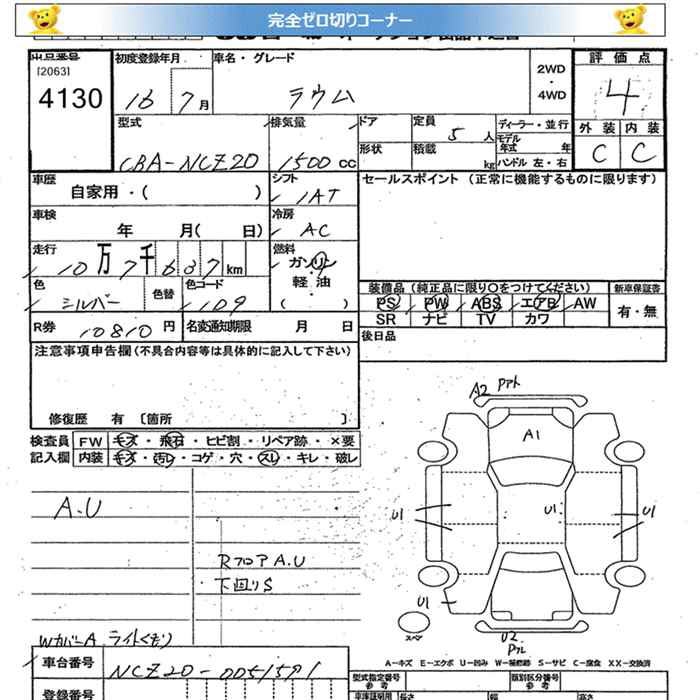 完全ゼロ切りコーナー
出品番号
[2063]
4130
初度登録年月
16 7月
車名・グレード
ラウム
2WD
・
4WD
評価点
4
外装 内装
C C
型式
CBA-NCZ20
排気量
1500 CC
ドア
形状
定員 5人
積載 kg
ディーラー・並行
モデル年式 年
ハンドル 左・右
車歴
自家用・( )
シフト
IAT
セールスポイント (正常に機能するものに限ります)
車検
年 月( 日)
冷房
AC
走行
10万7千637km
燃料
ガソリン
軽油
( )
色
シルバー
色替
色コード
109
装備品(純正品に限り○をつけてください)
新車保証書
PS PW ABS エアB AW
有・無
SR ナビ TV カワ
R券 10810円
名変通知期限 月 日
後日品
注意事項申告欄(不具合内容等は具体的に記入して下さい)
修復歴 有 〔箇所 〕
検査員 FW キズ・飛石・ヒビ割・リペア跡・×要
記入欄 内装 キズ・汚レ・コゲ・穴・スレ・キレ・破レ
A2 アト
A1
A.U
U1
U1
U1
RフロアA.U
下回りS
U1
スペア
U2
WカバーA ライトくもり
A-キズ E-エクボ U-凹み W-補修跡 S-サビ C-腐食 XX-交換済
車台番号
NCZ20-0051591
型式指定番号
参考
類別区分番号
参考
登録番号
車庫証明用
参考
長さ
幅
高さ